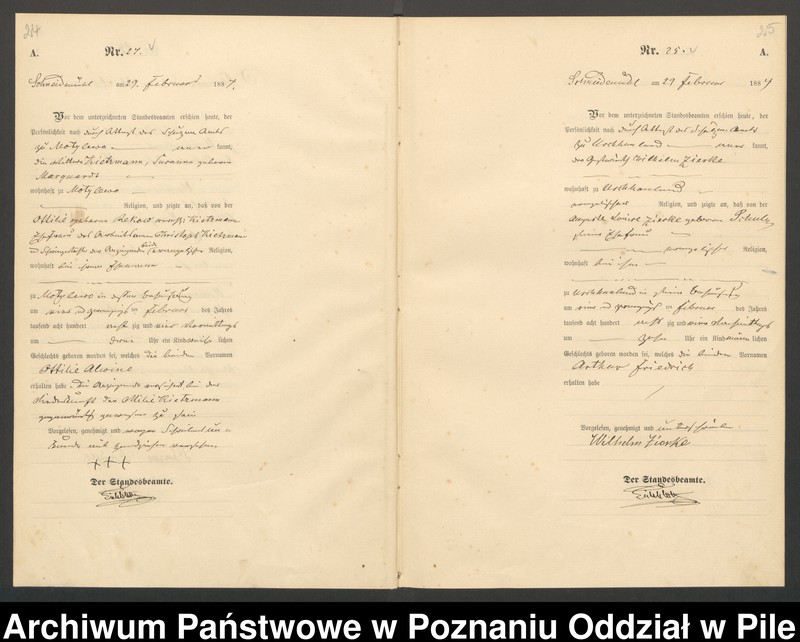 24
A.
Nr. 24.
Schneidemühl am 29. Februar 1884.
Vor dem unterzeichneten Standesbeamten erschien heute, der
Persönlichkeit nach durch Attest des Schulzen Amts
zu Motylewo kannt,
die Kietzmann, Susanna geborene
Marquardt
wohnhaft zu Motylewo
Religion, und zeigte an, daß von der
Ottilie geborene Kietzmann
Ehefrau des Christoph Kietzmann
der Anzeigenden evangelischer Religion,
wohnhaft bei ihrem Ehemanne
zu Motylewo in
am ein und zwanzigsten Februar des Jahres
tausend acht hundert acht zig und vier Vormittags
um drei Uhr ein Kind weib lichen
Geschlechts geboren worden sei, welches die beiden Vornamen
Ottilie Alwine
erhalten habe. Die Anzeigende bei der
Niederkunft der Ottilie Kietzmann
gegenwärtig gewesen zu sein
Vorgelesen, genehmigt und wegen
mit Handzeichen versehen
+++
Der Standesbeamte.
25
Nr. 25.
A.
Schneidemühl am 29 Februar 1884
Vor dem unterzeichneten Standesbeamten erschien heute, der
Persönlichkeit nach durch Attest des Schulzen Amts
zu Uschhauland kannt,
der Wilhelm Zierke
wohnhaft zu Uschhauland
evangelischer Religion, und zeigte an, daß von der
Auguste Louise Zierke geborenen Schulz
seiner Ehefrau
evangelischer Religion,
wohnhaft bei ihm
zu Uschhauland in seiner Behausung
am ein und zwanzigsten Februar des Jahres
tausend acht hundert acht zig und vier
um zehn Uhr ein Kind männ lichen
Geschlechts geboren worden sei, welches die beiden Vornamen
Arthur Friedrich
erhalten habe
Vorgelesen, genehmigt und unterschrieben
Wilhelm Zierke
Der Standesbeamte.
Archiwum Państwowe w Poznaniu Oddział w Pile